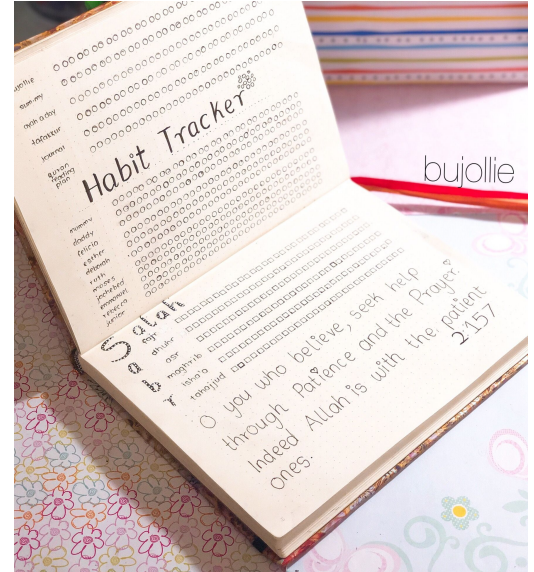 bujollie
bujollie
sum-my
ayah a day
tafakkur
journal
Quran
reading
plan
Habit Tracker
mummy
daddy
felicia
esther
deborah
ruth
moses
jochebed
emmanuel
rebecca
junior
Salah
Sabr
fajr
dhuhr
asr
maghrib
isha'a
tahajjud
O you who believe, seek help
through Patience and the Prayer.
Indeed Allah is with the patient
ones.
2:157